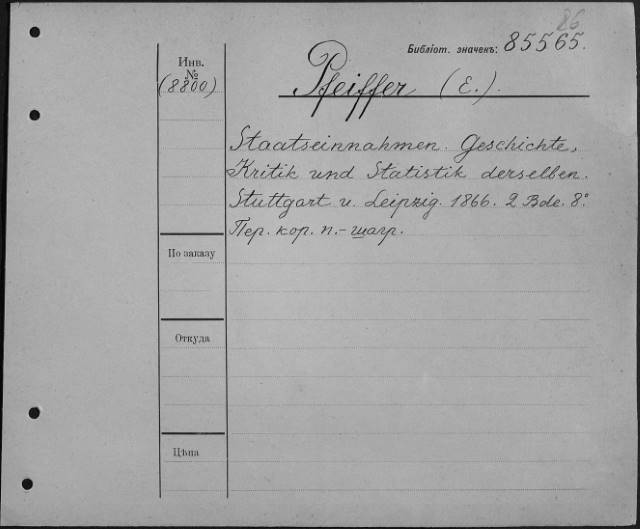 26
Библіот. значекъ: 85565.
Инв.
№
(8800)
Pfeiffer (E.).
Staatseinnahmen. Geschichte,
Kritik und Statistik derselben.
Stuttgart u. Leipzig. 1866. 2 Bde. 8°
Пер. кор. п.-шагр.
По заказу
Откуда
Цѣна